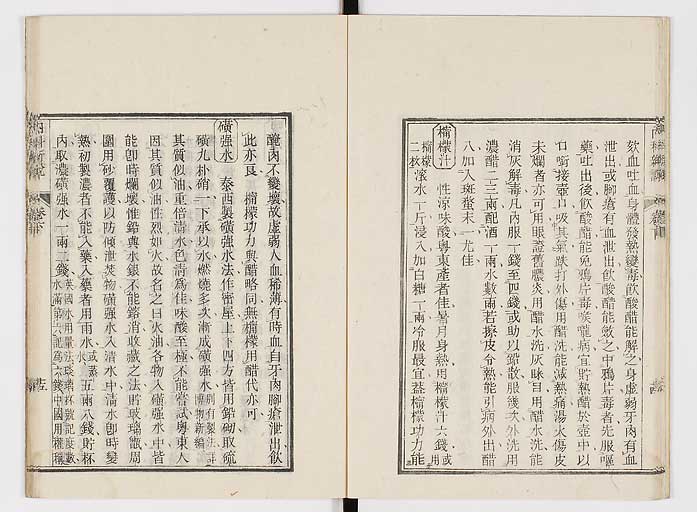 欬血吐血身體發熱變毒飲酸醋能解之身虛弱牙肉有血
泄出或腳瘡有血泄出飲酸醋能斂之中鴉片毒者先服嘔
藥吐出後飲酸醋能免鴉片毒咲嚨病宜貯熱醋於壺中以
口啣接壺口吸其氣跌打外傷用醋洗能減熱痛湯火傷皮
未爛者亦可用眼蓋舊膿炎用醋水洗灰眯目用醋水洗能
消灰解毒凡內服一錢至四錢或助以
濃醋二三兩配酒一兩水數兩若擦皮令熱能引病外出醋
八加入斑蝥末一尤佳
檸檬汁 性涼味酸粵東產者佳暑月身熱用檸檬汁六錢或用
檸檬二枚滾水一斤浸入加白糖一兩冷服最宜益檸檬功力能
醃肉不變壞故虛弱人血稀薄有時血自牙肉腳瘡泄出飲
此亦良 檸檬功力與醋略同無檸檬用醋代亦可
磺強水 泰西製磺強水法作密屋上下四方皆用鉛砌取硫
磺九朴硝一下承以水燃燒多次漸成磺強水 博物新編
其質似油重倍清水色清爲佳味酸至極不能嘗試粵東人
因其質似油性烈如火故名之曰火油各物入磺強水中皆
能卽時爛壞惟鉛與水銀不能鎔消收藏之法貯玻璃瓶周
圍用砂覆護以防傾泄萊物磺強水入清水中清水卽時變
熱初製濃者不能入藥入藥者用雨水或蒸水五兩八錢貯杯
內取濃磺強水一兩二錢
內科新說 卷下